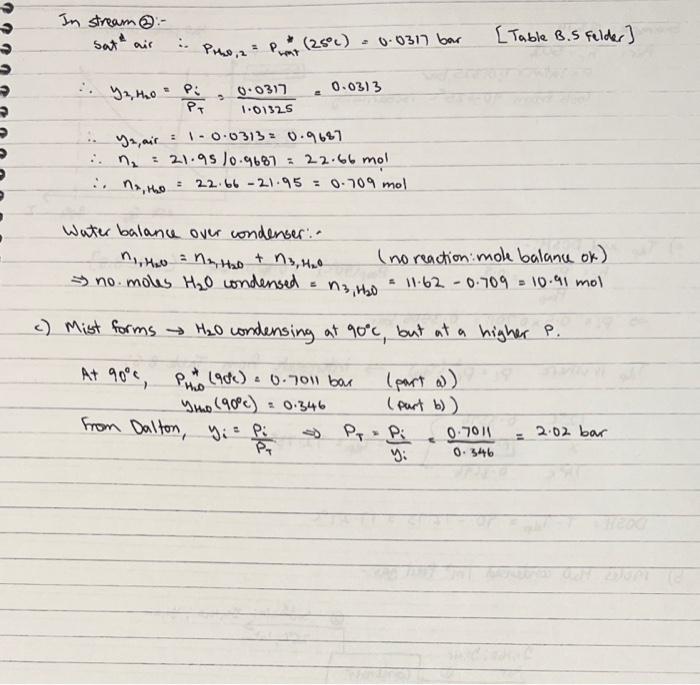 In stream ②:-
Satᵈ air ∴ P_H₂O,2 = P*_wat (25°C) = 0.0317 bar [Table B.5 Felder]
∴ y₂,H₂O = Pi/P_T = 0.0317/1.01325 = 0.0313
∴ y₂,air = 1 - 0.0313 = 0.9687
∴ n₂ = 21.95/0.9687 = 22.66 mol
∴ n₂,H₂O = 22.66 - 21.95 = 0.709 mol
Water balance over condenser:-
n₁,H₂O = n₂,H₂O + n₃,H₂O (no reaction: mole balance ok)
⇒ no. moles H₂O condensed = n₃,H₂O = 11.62 - 0.709 = 10.91 mol
c) Mist forms → H₂O condensing at 90°C, but at a higher P.
At 90°C, P*_H₂O (90°C) = 0.7011 bar (part a))
y_H₂O (90°C) = 0.346 (part b))
From Dalton, yi = Pi/P_T ⇒ P_T = Pi/yi = 0.7011/0.346 = 2.02 bar